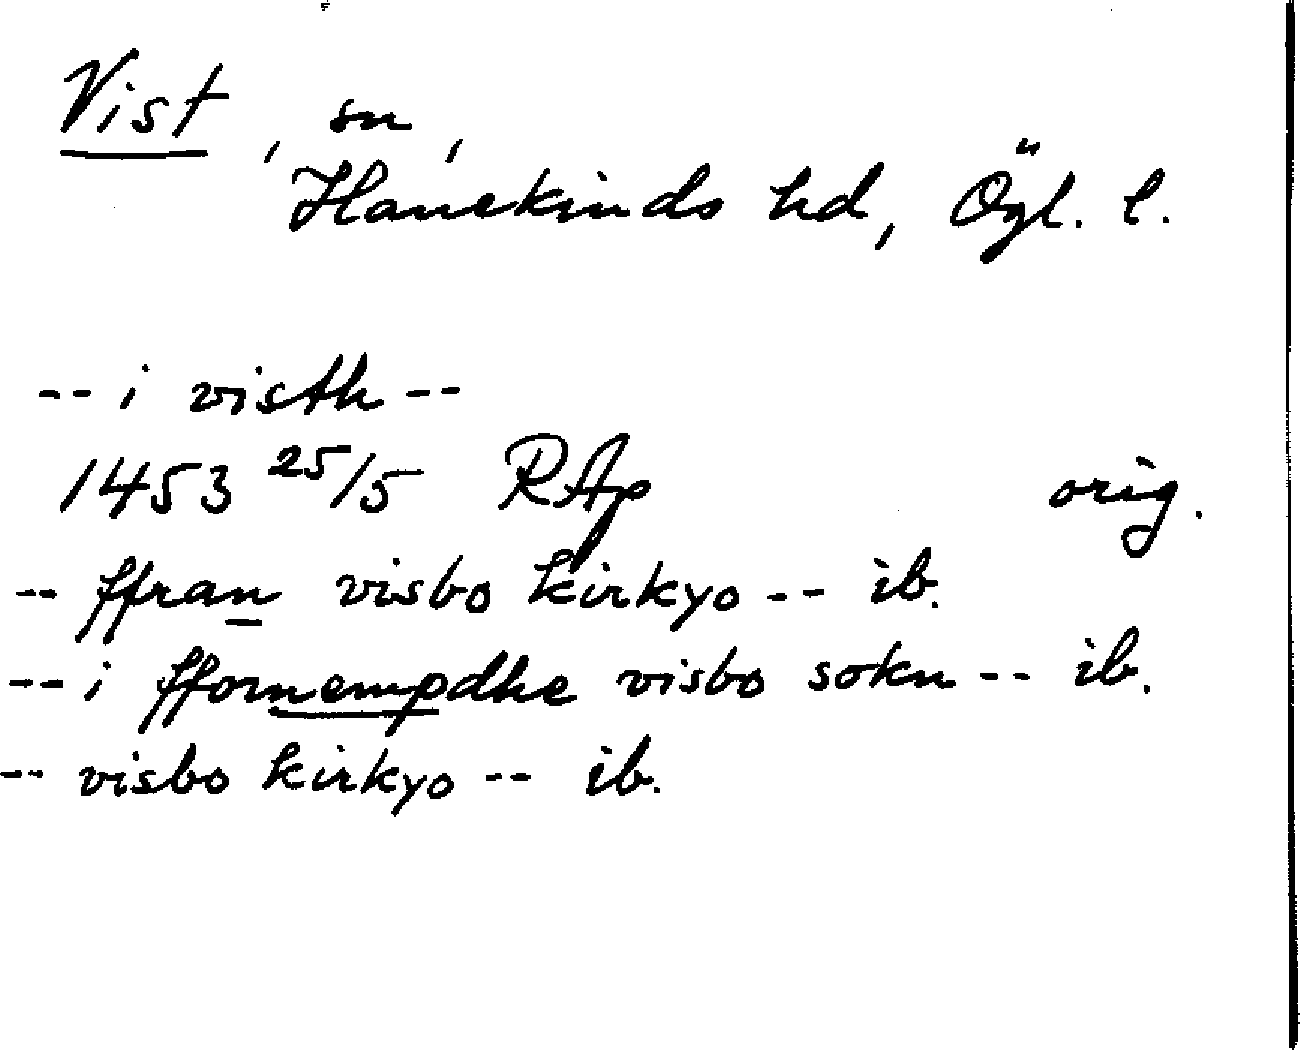 Vist, sn,
Hanekinds hd, Ögl. l.
-- i visth --
1453 25/5 RAp orig.
-- ffran visbo kirkyo -- ib.
-- i ffornempdhe visbo sokn -- ib.
-- visbo kirkyo -- ib.